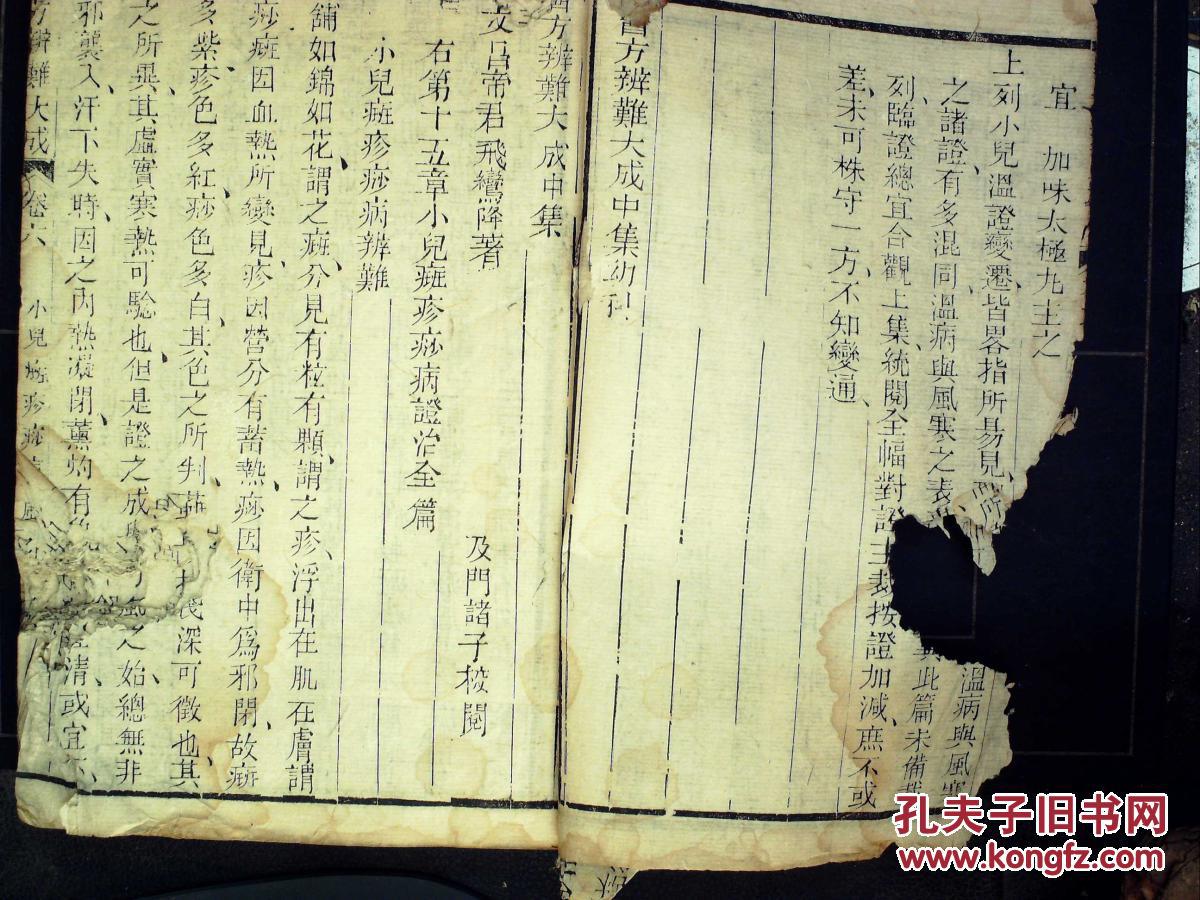 宜　加味太極丸主之
上列小兒溫證變遷皆畧指所易見所 溫病與風寒
之諸證有多混同溫病與風寒之表 此篇未備
列臨證總宜合觀上集統閱全幅對證主 按證加減庶不或
差未可株守一方不知變通
醫方辨難大成中集幼科
醫方辨難大成中集
文昌帝君飛鸞降著　及門諸子校閱
右第十五章小兒癍疹痧病證治全篇
小兒癍疹痧病辨難
舖如錦如花謂之癍分見有粒有顆謂之疹浮出在肌在膚謂
痧癍因血熱所變見疹因營分有蓄熱痧因衛中爲邪閉故癍
多紫疹色多紅痧色多白其色之所判 淺深可徵也其
之所異其虛實寒熱可驗也但是證之成 風之始總無非
邪襲入汗下失時因之內熱凝閉薰灼有 清或宜
方辨難大成 卷六 小兒癍疹痧
孔夫子旧书网
www.kongfz.com